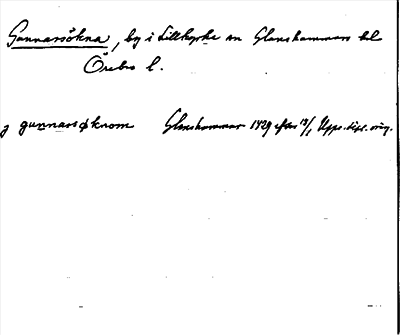 Gunnarsökna, by i Lillkyrka sn Glanshammars hd
Örebro l.
j gunnarsøknom Glanshammar 1429 efter 13/1 Upps. dipl. orig.